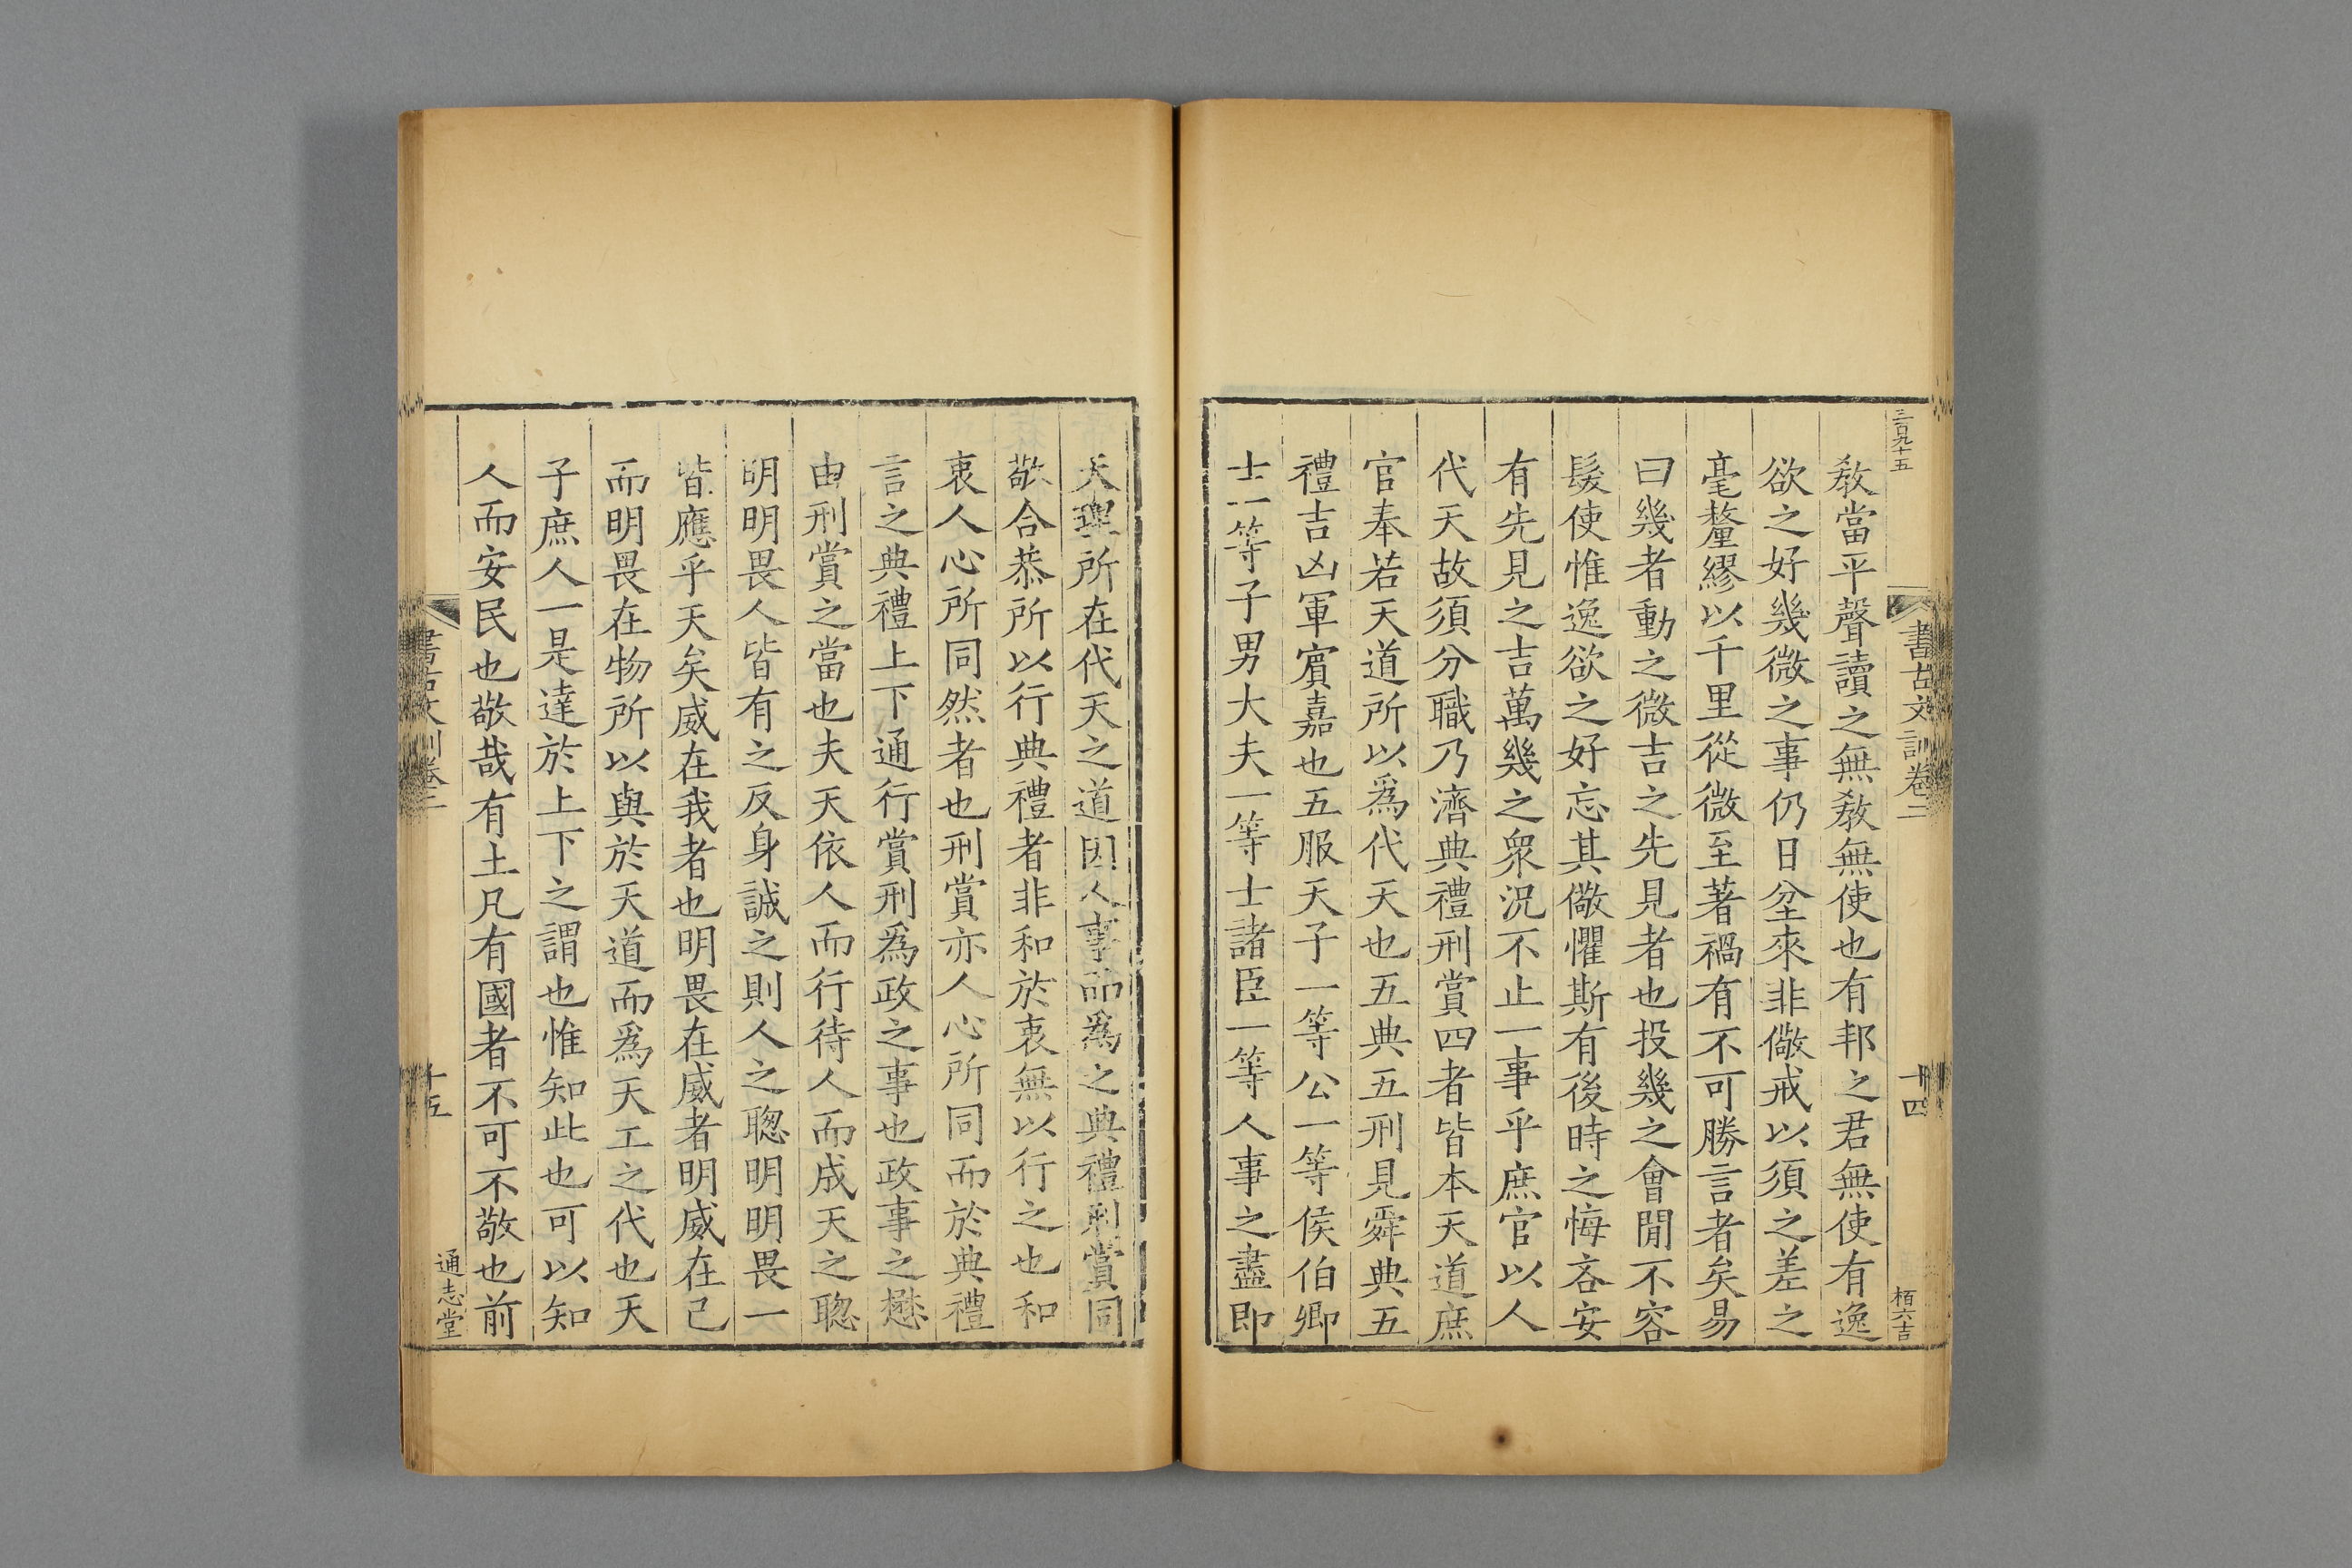 三百九十五
書古文訓卷二
十四
栢六吉
敎當平聲讀之無敎無使也有邦之君無使有逸
欲之好幾微之事仍日坌來非儆戒以須之差之
毫釐繆以千里從微至著禍有不可勝言者矣易
曰幾者動之微吉之先見者也投幾之會閒不容
髮使惟逸欲之好忘其儆懼斯有後時之悔吝安
有先見之吉萬幾之衆況不止一事乎庶官以人
代天故須分職乃濟典禮刑賞四者皆本天道庶
官奉若天道所以爲代天也五典五刑見舜典五
禮吉凶軍賓嘉也五服天子一等公一等侯伯卿
士一等子男大夫一等士諸臣一等人事之盡即
天理所在代天之道因人事而爲之典禮刑賞同
敬合恭所以行典禮者非和於衷無以行之也和
衷人心所同然者也刑賞亦人心所同而於典禮
言之典禮上下通行賞刑爲政之事也政事之懋
由刑賞之當也夫天依人而行待人而成天之聦
明明畏人皆有之反身誠之則人之聦明明畏一
皆應乎天矣威在我者也明畏在威者明威在己
而明畏在物所以與於天道而爲天工之代也天
子庶人一是達於上下之謂也惟知此也可以知
人而安民也敬哉有土凡有國者不可不敬也前
書古文訓卷二
十五
通志堂